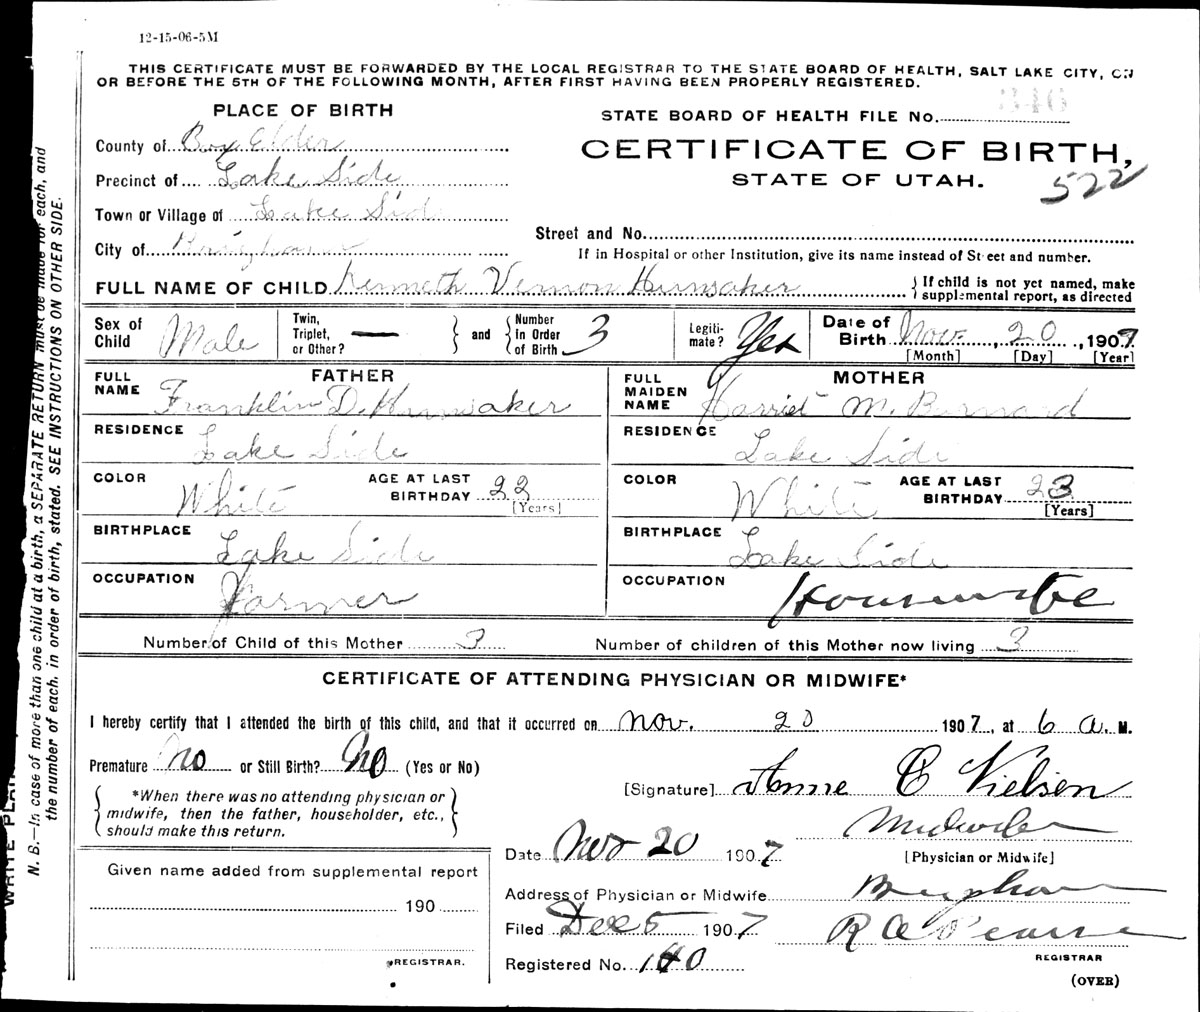 12-15-06-5M
THIS CERTIFICATE MUST BE FORWARDED BY THE LOCAL REGISTRAR TO THE STATE BOARD OF HEALTH, SALT LAKE CITY, ON
OR BEFORE THE 5TH OF THE FOLLOWING MONTH, AFTER FIRST HAVING BEEN PROPERLY REGISTERED.
PLACE OF BIRTH
County of Box Elder
Precinct of Lake Side
Town or Village of Lake Side
City of Brigham
346
STATE BOARD OF HEALTH FILE No.
CERTIFICATE OF BIRTH,
STATE OF UTAH.
522
Street and No.
If in Hospital or other Institution, give its name instead of Street and number.
FULL NAME OF CHILD Kenneth Vernon Hunsaker
If child is not yet named, make
supplemental report, as directed
Sex of Child Male
Twin, Triplet, or Other? —
and
Number in Order of Birth 3
Legitimate? Yes
Date of Birth Nov. 20, 1907
[Month] [Day] [Year]
FATHER
FULL NAME Franklin D. Hunsaker
RESIDENCE Lake Side
COLOR White
AGE AT LAST BIRTHDAY 22
[Years]
BIRTHPLACE Lake Side
OCCUPATION Farmer
MOTHER
FULL MAIDEN NAME Harriet M. Burnard
RESIDENCE Lake Side
COLOR White
AGE AT LAST BIRTHDAY 23
[Years]
BIRTHPLACE Lake Side
OCCUPATION Housewife
Number of Child of this Mother 3
Number of children of this Mother now living 3
CERTIFICATE OF ATTENDING PHYSICIAN OR MIDWIFE*
I hereby certify that I attended the birth of this child, and that it occurred on Nov. 20 1907, at 6 a. M.
Premature No or Still Birth? No (Yes or No)
*When there was no attending physician or
midwife, then the father, householder, etc.,
should make this return.
[Signature] Anne C Nielsen
Midwife
[Physician or Midwife]
Date Nov 20 1907
Address of Physician or Midwife Brigham
Filed Dec 5 1907
R A Pearse
REGISTRAR
Registered No. 140
(OVER)
Given name added from supplemental report
190
REGISTRAR.
N. B.—In case of more than one child at a birth, a SEPARATE RETURN must be made for each, and
the number of each, in order of birth, stated. SEE INSTRUCTIONS ON OTHER SIDE.
WRITE